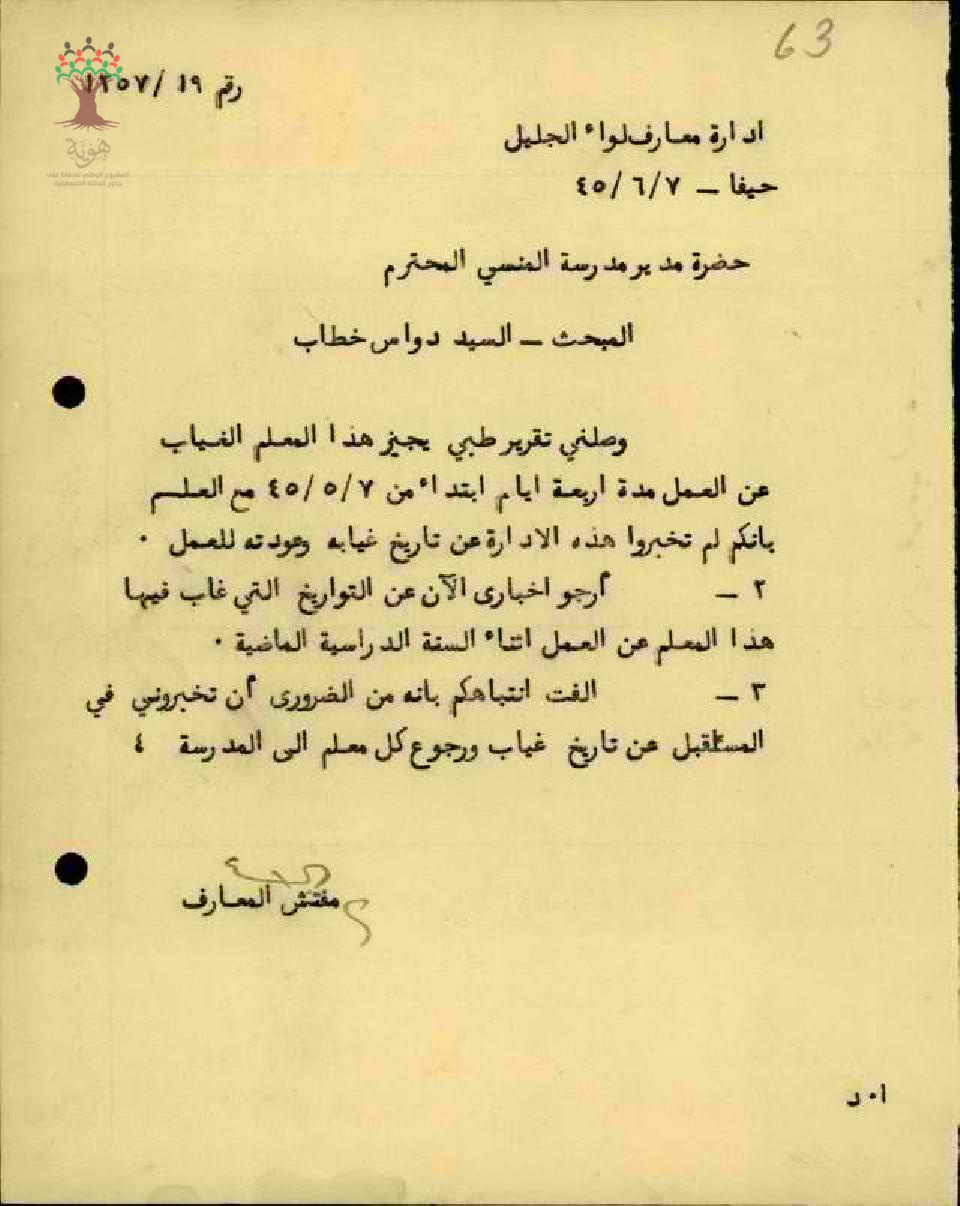 63
رقم ١٩/ ١٢٥٧
ادارة معارف لواء الجليل
حيفا – ٤٥/٦/٧
حضرة مدير مدرسة المنسي المحترم
المبحث – السيد دواس خطاب
وصلني تقرير طبي يجيز هذا المعلم الغياب
عن العمل مدة اربعة ايام ابتداء من ٤٥/٥/٧ مع العلم
بانكم لم تخبروا هذه الادارة عن تاريخ غيابه وعودته للعمل ٠
٢ – أرجو اخباري الآن عن التواريخ التي غاب فيها
هذا المعلم عن العمل اثناء السنة الدراسية الماضية ٠
٣ – الفت انتباهكم بانه من الضروري أن تخبروني في
المستقبل عن تاريخ غياب ورجوع كل معلم الى المدرسة ٤
مفتش المعارف
ا٠د
هوية
المشروع الوطني للحفاظ على
جذور العائلة الفلسطينية